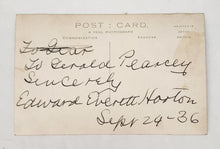 POST : CARD.
A REAL PHOTOGRAPH
COMMUNICATION ADDRESS
To Dear
To Gerald Pearcey
Sincerely
Edward Everett Horton
Sept 24-36